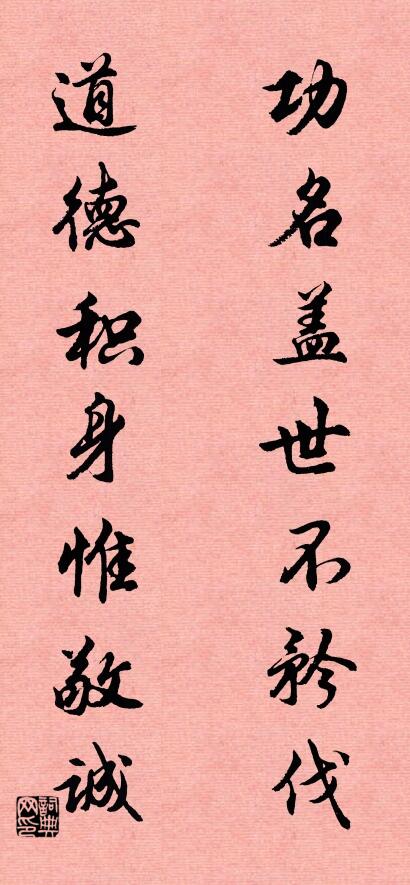 功名盖世不矜伐
道德积身惟敬诚
詞典网印